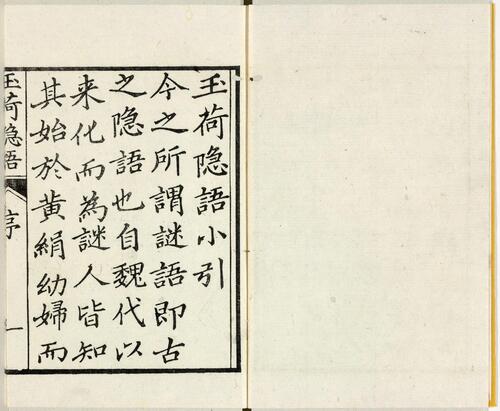 玉荷隐語小引
今之所謂謎語即古
之隐語也自魏代以
来化而為謎人皆知
其始於黄絹幼婦而
玉荷隐語
序
一